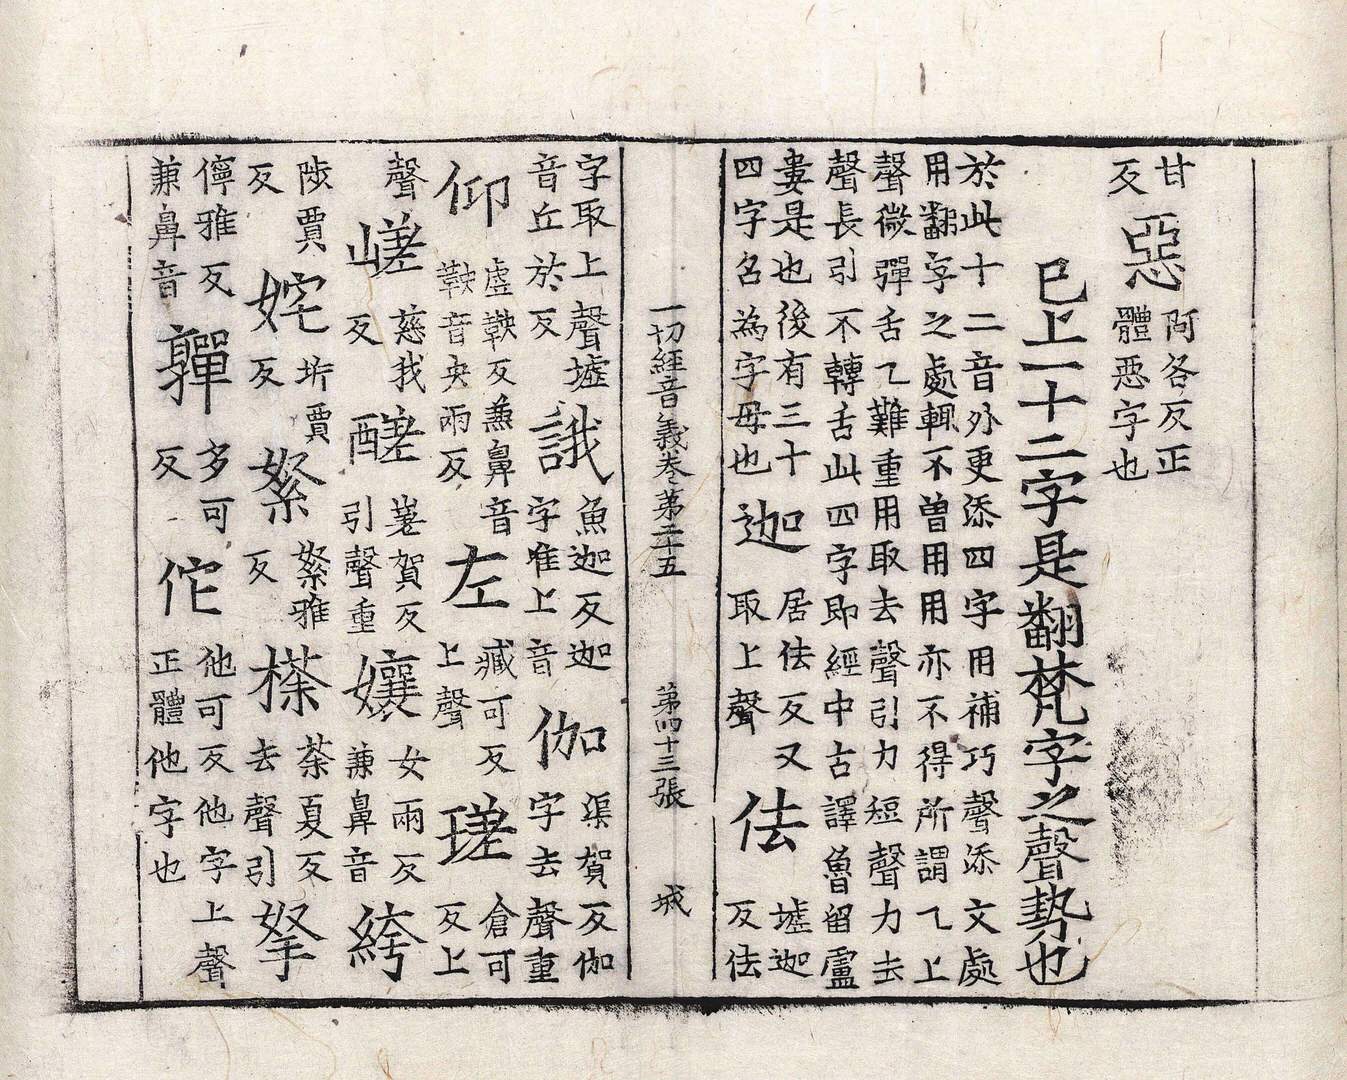 甘反惡阿各反正體惡字也
巳上一十二字是翻梵字之聲勢也
於此十二音外更添四字用補巧聲添文處
用翻字之處輒不曾用用亦不得所謂乙上
聲微彈舌乙難重用取去聲引力短聲力去
聲長引不轉舌此四字即經中古譯魯留盧
婁是也後有三十四字名為字母也迦居佉反又取上聲佉墟迦反佉
一切經音義卷第二十五 第四十三張 城
字取上聲墟音丘於反誐魚迦反迦字准上音伽渠賀反伽字去聲重
仰虛鞅反兼鼻音鞅音央兩反左臧可反上聲瑳倉可反上
聲嵯慈我反醝嵯賀反引聲重孃女兩反兼鼻音絝
陟賈反姹坼賈反絮絮雅反搽茶夏反去聲引拏
儜雅反兼鼻音嚲多可反佗他可反他字上聲正體他字也